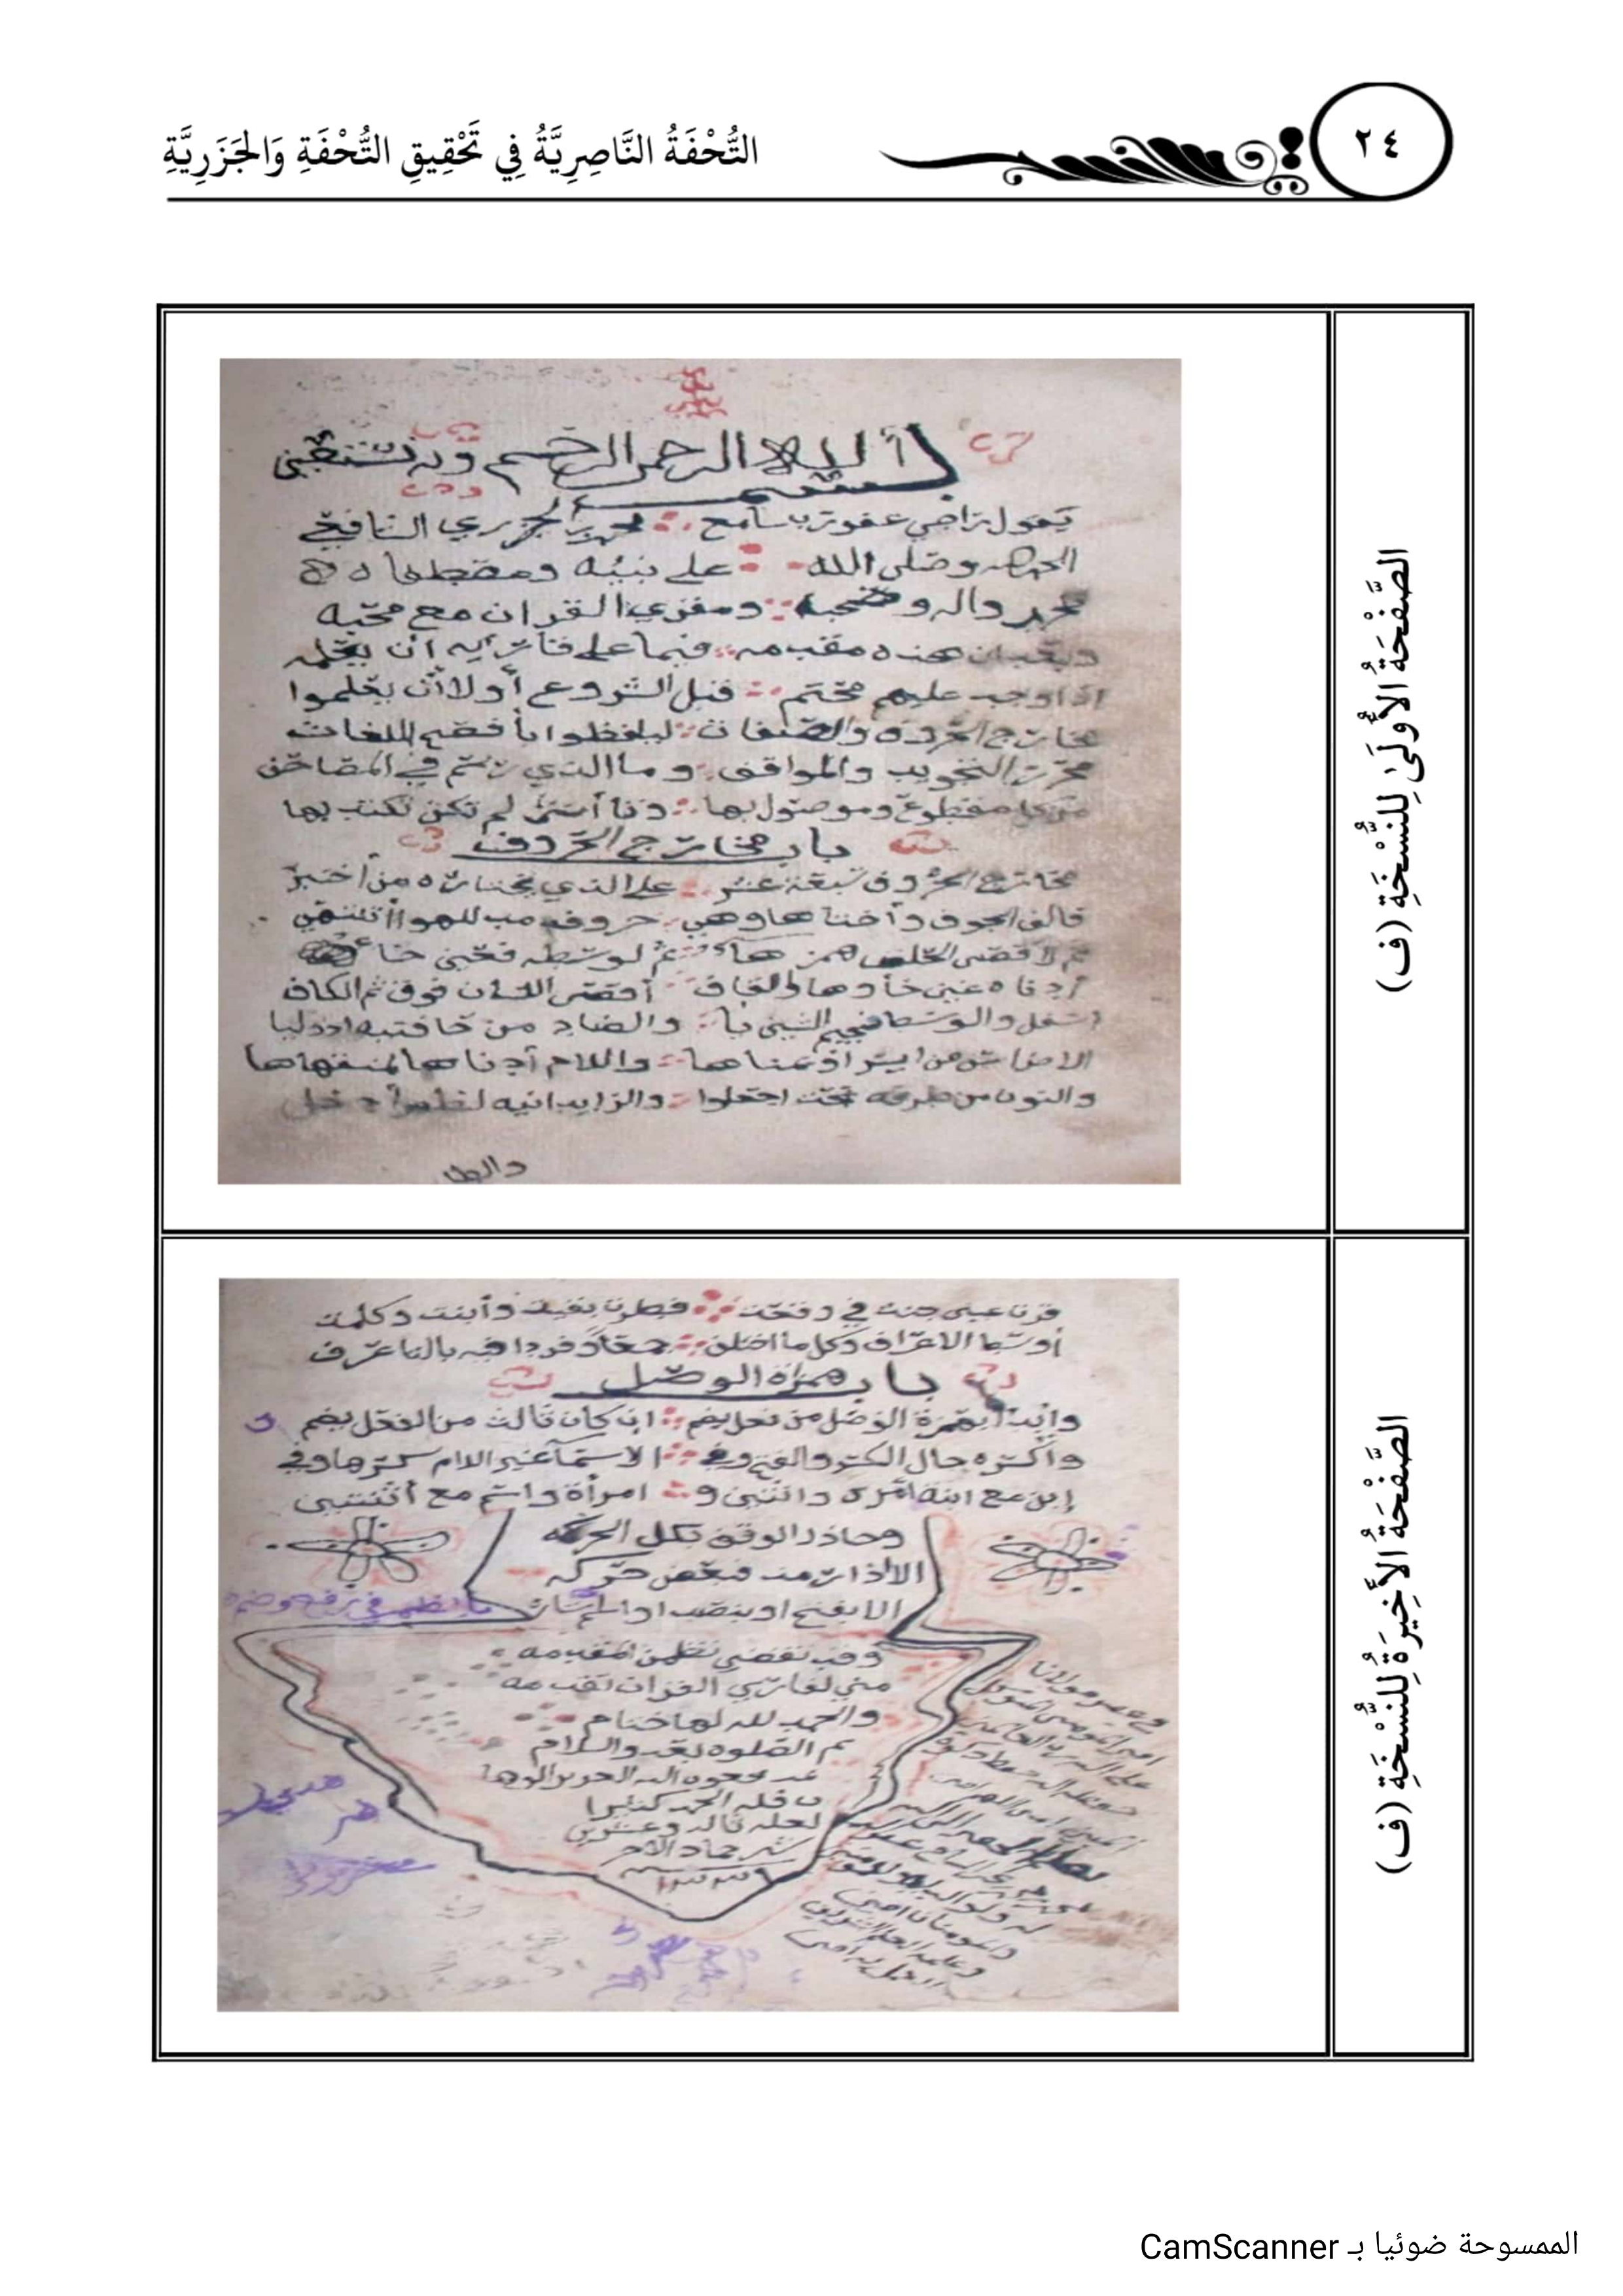 ٢٤
التُّحْفَةُ النَّاصِرِيَّةُ فِي تَحْقِيقِ التُّحْفَةِ وَالجَزَرِيَّةِ
الصَّفْحَةُ الأُولَىٰ لِلنُّسْخَةِ (ف)
بسم الله الرحمن الرحيم وبه نستعين
يقول راجي عفو رب سامع محمد الجزري الشافعي
الحمد لله وصلى الله على نبيه ومصطفاه
محمد واله وصحبه ومقرئ القران مع محبه
وبعد ان هذه مقدمه فيما على قارئه ان يعلمه
اذ اوجب عليهم محتم قبل الشروع أولا أن يعلموا
مخارج الحروف والصفات ليلفظوا بأفصح اللغات
محرري التجويد والمواقف وما الذي رسم في المصاحف
من كل مقطوع وموصول بها وتا أنثى لم تكن تكتب بها
باب مخارج الحروف
مخارج الحروف سبعة عشر على الذي يختاره من أختبر
فالف الجوف وأختاها وهي حروف مد للهواء تنتهي
ثم لاقصى الحلق همز هاء ثم لوسطه فعين حاء
أدناه غين خاؤها والقاف أقصى اللسان فوق ثم الكاف
اسفل والوسط فجيم الشين يا والضاد من حافته اذ وليا
الاضراس من ايسر او يمناها واللام أدناها لمنتهاها
والنون من طرفه تحت اجعلوا والرا يدانيه لظهر أدخل
والطا
الصَّفْحَةُ الأَخِيرَةُ لِلنُّسْخَةِ (ف)
قرت عين جنت في وقعت فطرت بقيت وأبنت وكلمت
أوسط الاعراف وكل ما اختلف جمعا وفردا فيه بالتا عرف
باب همزة الوصل
وابدأ بهمزة الوصل من فعل بضم ان كان ثالث من الفعل يضم
واكسره حال الكسر والفتح وفي الاسماء غير اللام كسرها وفي
إبن مع ابنة امرئ واثنين وامرأة واسم مع اثنتين
وحاذر الوقف بكل الحركه
الا اذا رمت فبعض حركه
الا بفتح او بنصب او اشم اشارة بالضم في رفع وضم
وقد تقضى نظمي المقدمه
مني لقارئ القران تقدمه
والحمد لله لها ختام
ثم الصلوة بعد والسلام
الممسوحة ضوئيا بـ CamScanner